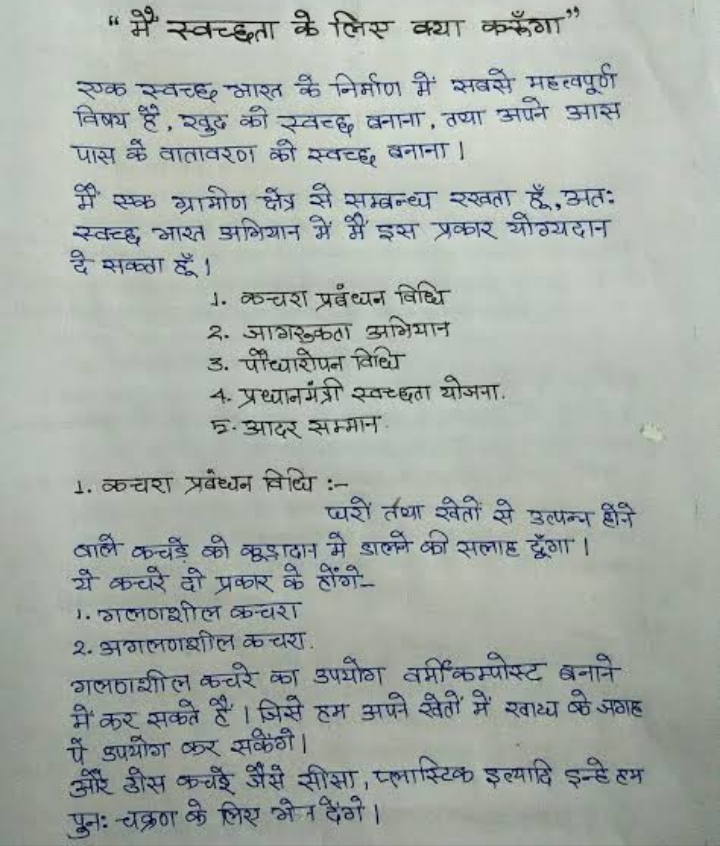 “मैं स्वच्छता के लिए क्या करूँगा”
एक स्वच्छ भारत के निर्माण में सबसे महत्वपूर्ण
विषय है, खुद को स्वच्छ बनाना, तथा अपने आस
पास के वातावरण को स्वच्छ बनाना।
मैं एक ग्रामीण क्षेत्र से सम्बन्ध रखता हूँ, अतः
स्वच्छ भारत अभियान में मैं इस प्रकार योग्यदान
दे सकता हूँ।
1. कचरा प्रबंधन विधि
2. जागरुकता अभियान
3. पौधारोपन विधि
4. प्रधानमंत्री स्वच्छता योजना.
5. आदर सम्मान.
1. कचरा प्रबंधन विधि :-
घरो तथा खेतों से उत्पन्न होने
वाले कचड़े को कूड़ादान मे डालने की सलाह दूँगा।
ये कचरे दो प्रकार के होंगे-
1. गलणशील कचरा
2. अगलणशील कचरा.
गलणशील कचरे का उपयोग वर्मीकम्पोस्ट बनाने
में कर सकते हैं। जिसे हम अपने खेतों में खाद्य के जगह
पें उपयोग कर सकेंगे।
और ठोस कचड़े जैसे सीसा, प्लास्टिक इत्यादि इन्हे हम
पुनः चक्रण के लिए भेज देंगे।